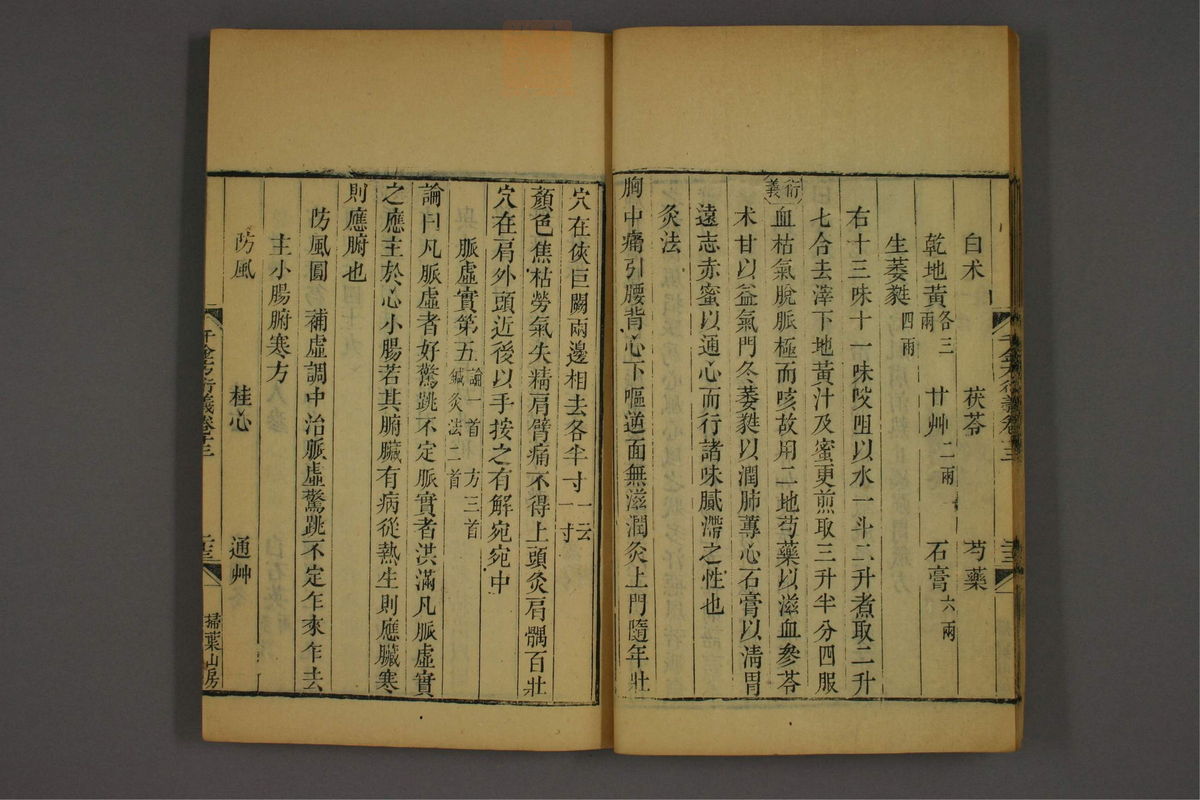 白术 茯苓 芍藥
乾地黃各三兩 甘艸二兩 石膏六兩
生萎蕤四兩
右十三味十一味㕮咀以水一斗二升煮取二升
七合去滓下地黃汁及蜜更煎取三升半分四服
衍義 血枯氣脫脈極而咳故用二地芍藥以滋血參苓
术甘以益氣門冬萎蕤以潤肺蓴心石膏以淸胃
遠志赤蜜以通心而行諸味膩滯之性也
灸法
胸中痛引腰背心下嘔逆面無滋潤灸上門隨年壯
穴在俠巨闕兩邊相去各半寸一云一寸
顏色焦枯勞氣失精肩臂痛不得上頭灸肩髃百壯
穴在肩外頭近後以手按之有解宛宛中
脈虛實第五論一首 方三首 鍼灸法二首
論曰凡脈虛者好驚跳不定脈實者洪滿凡脈虛實
之應主於心小腸若其腑臟有病從熱生則應臟寒
則應腑也
防風圓 補虛調中治脈虛驚跳不定乍來乍去
主小腸腑寒方
防風 桂心 通艸
千金方衍義卷十三
掃葉山房